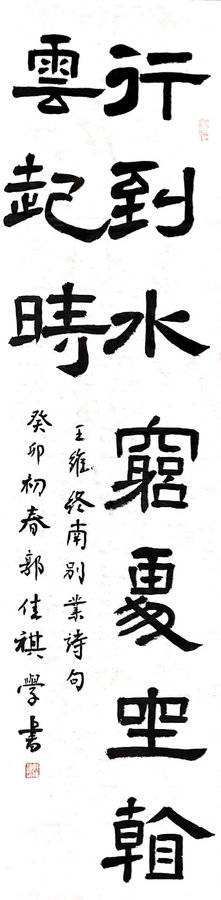 行到水窮處坐看
雲起時
王維終南別業詩句
癸卯初春郭佳祺學書